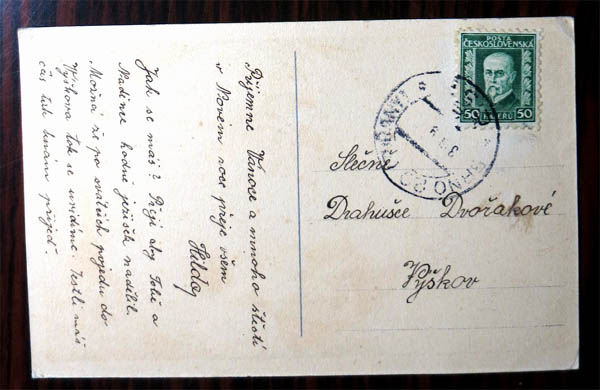 Příjemné Vánoce a mnoho štěstí
v Novém roce přeje všem
Hilda
Jak se máš? Přeji aby Tobě a
Nadince hodný ježíšek nadělil.
Možná že po svátcích pojedu do
Výškova tak se uvidíme. Jestli máš
čas tak k nám přijeď.
POŠTA
ČESKOSLOVENSKÁ
50 50
BRNO
Slečně
Drahušce Dvořákové
Výškov